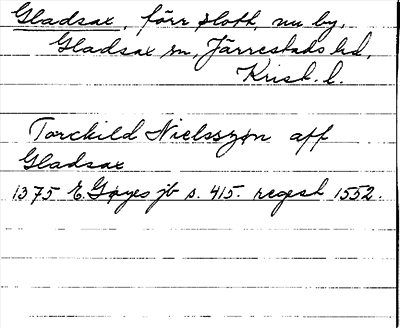 Gladsax, förr slott, nu by,
Gladsax sn, Järrestads hd,
Krist. l.
Torchild Nielsszøn aff
Gladsax
1375 E. Gøyes jb s. 415. regest 1552.